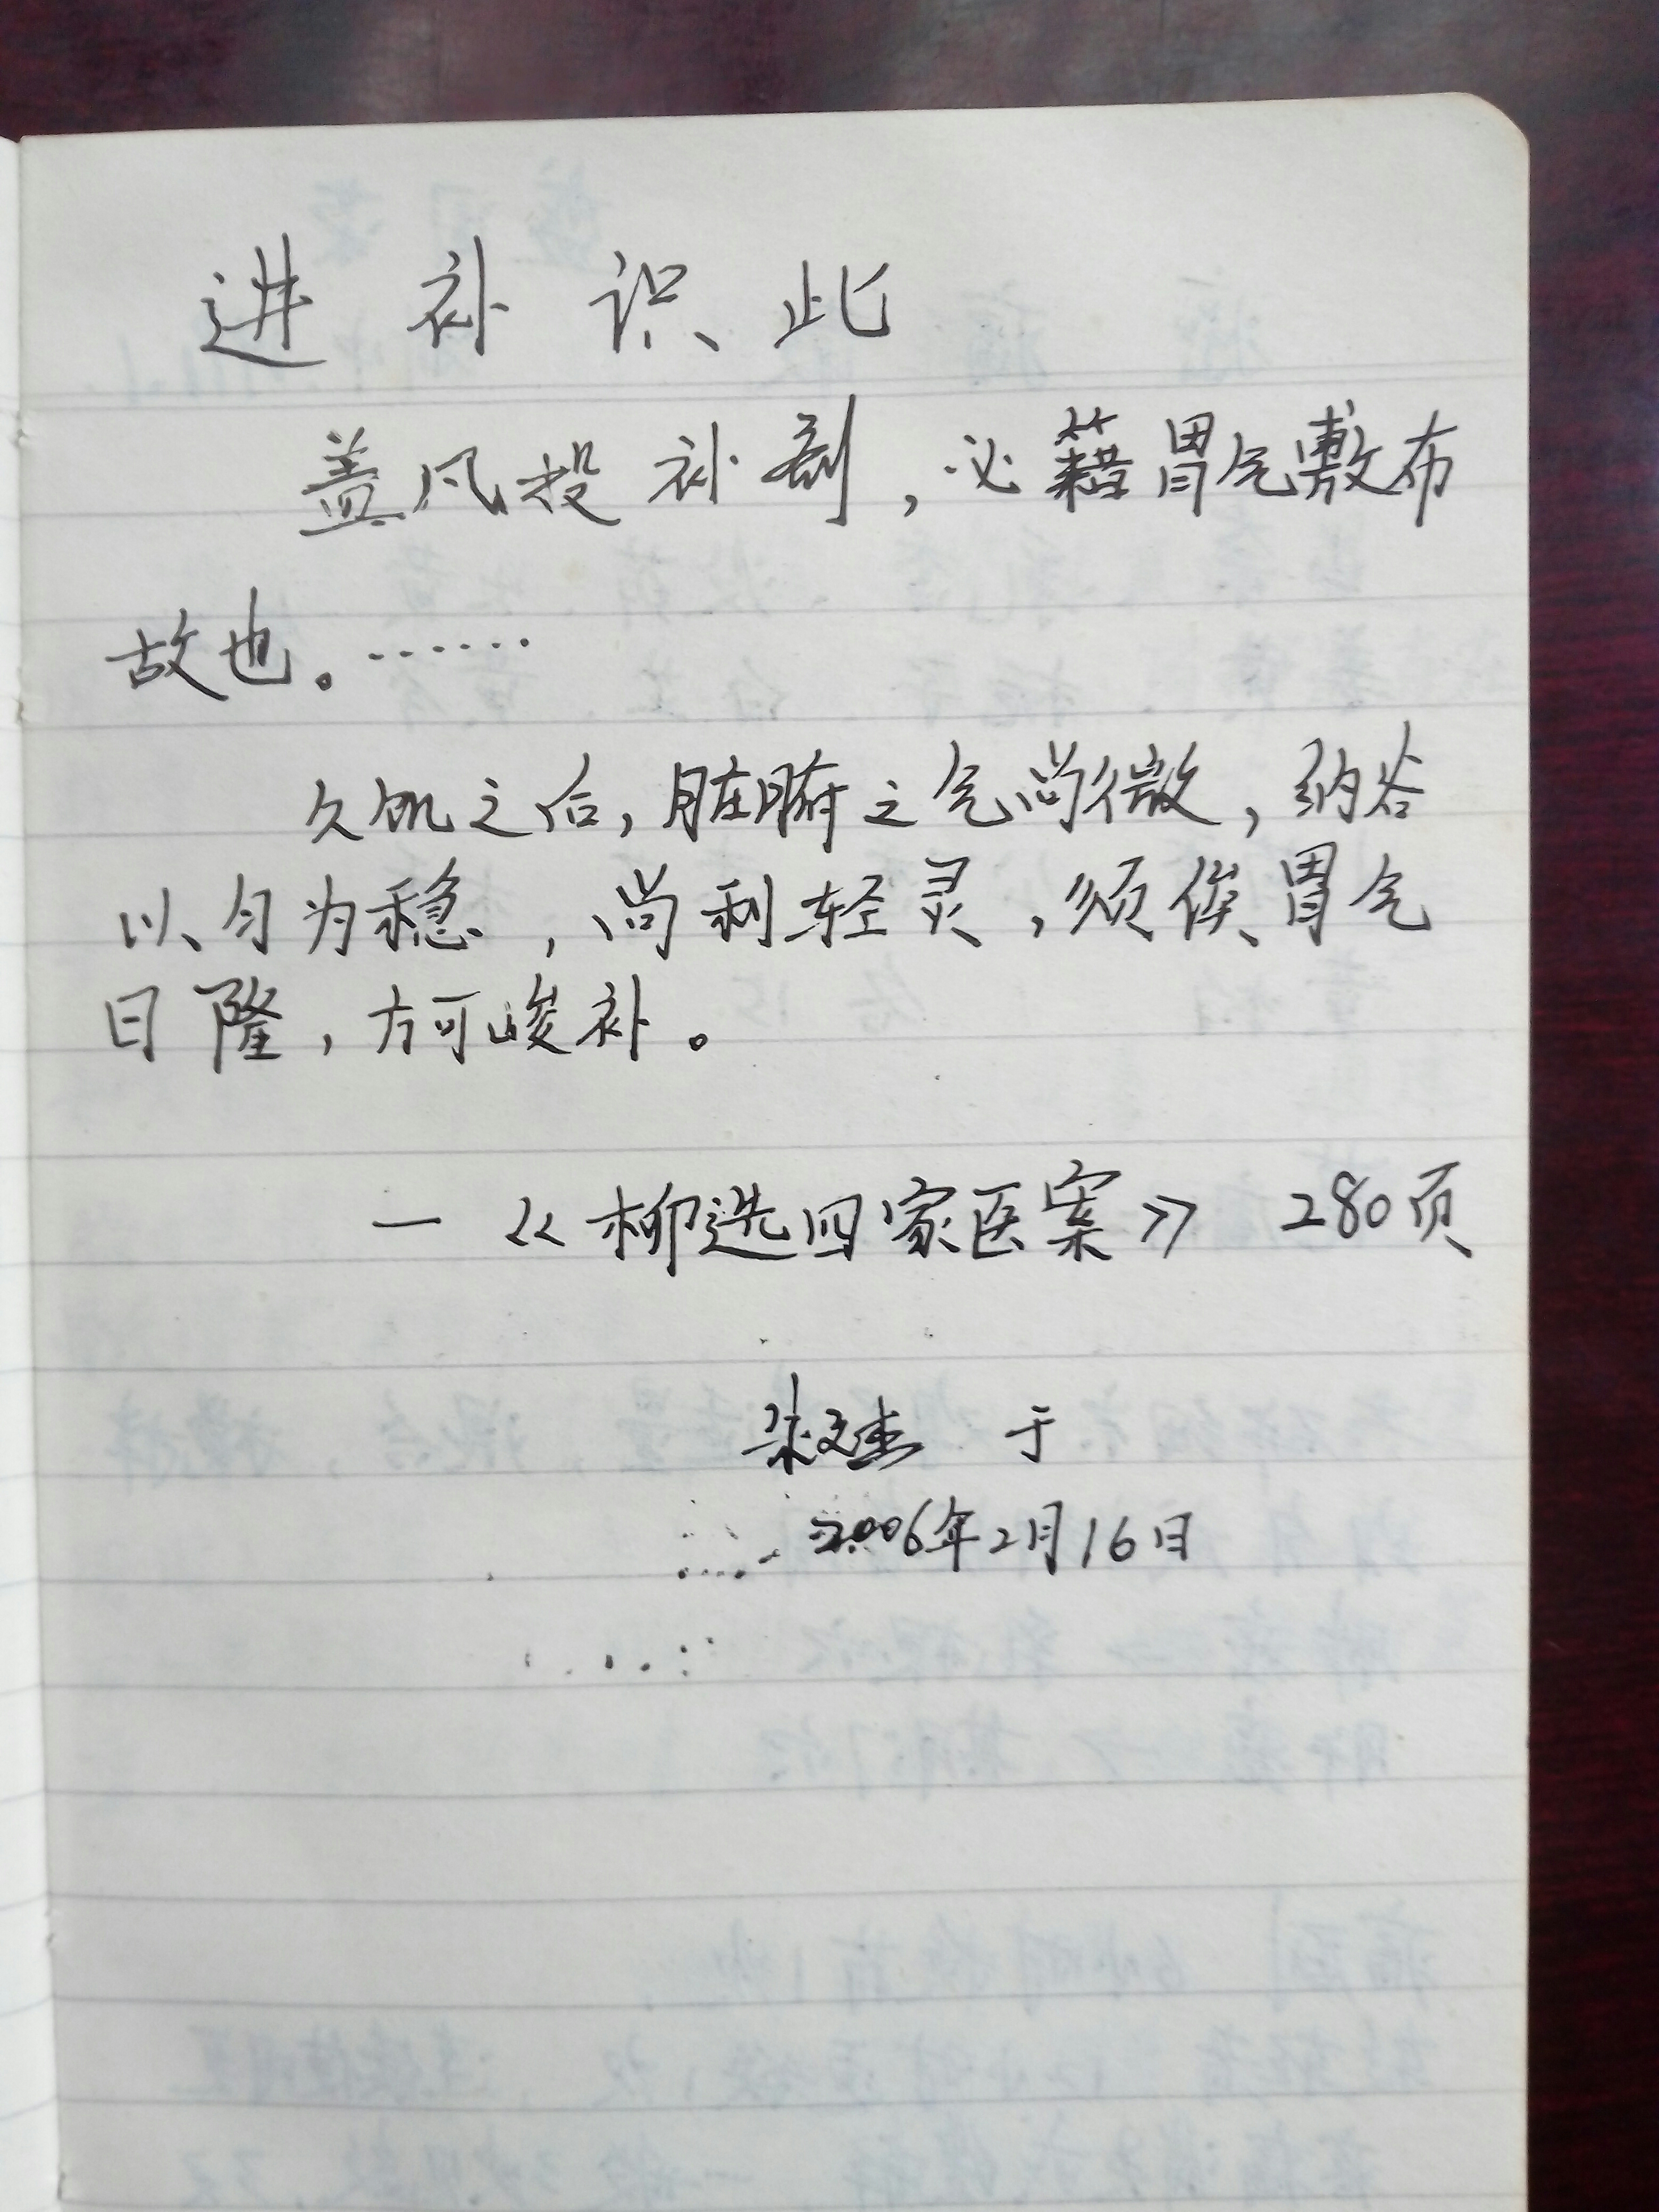 进补识此
盖凡投补剂，必藉胃气敷布
故也。……
久饥之后，脏腑之气尚微，纳谷
以匀为稳，尚利轻灵，须俟胃气
日隆，方可峻补。
—《柳选四家医案》 280页
于
2006年2月16日